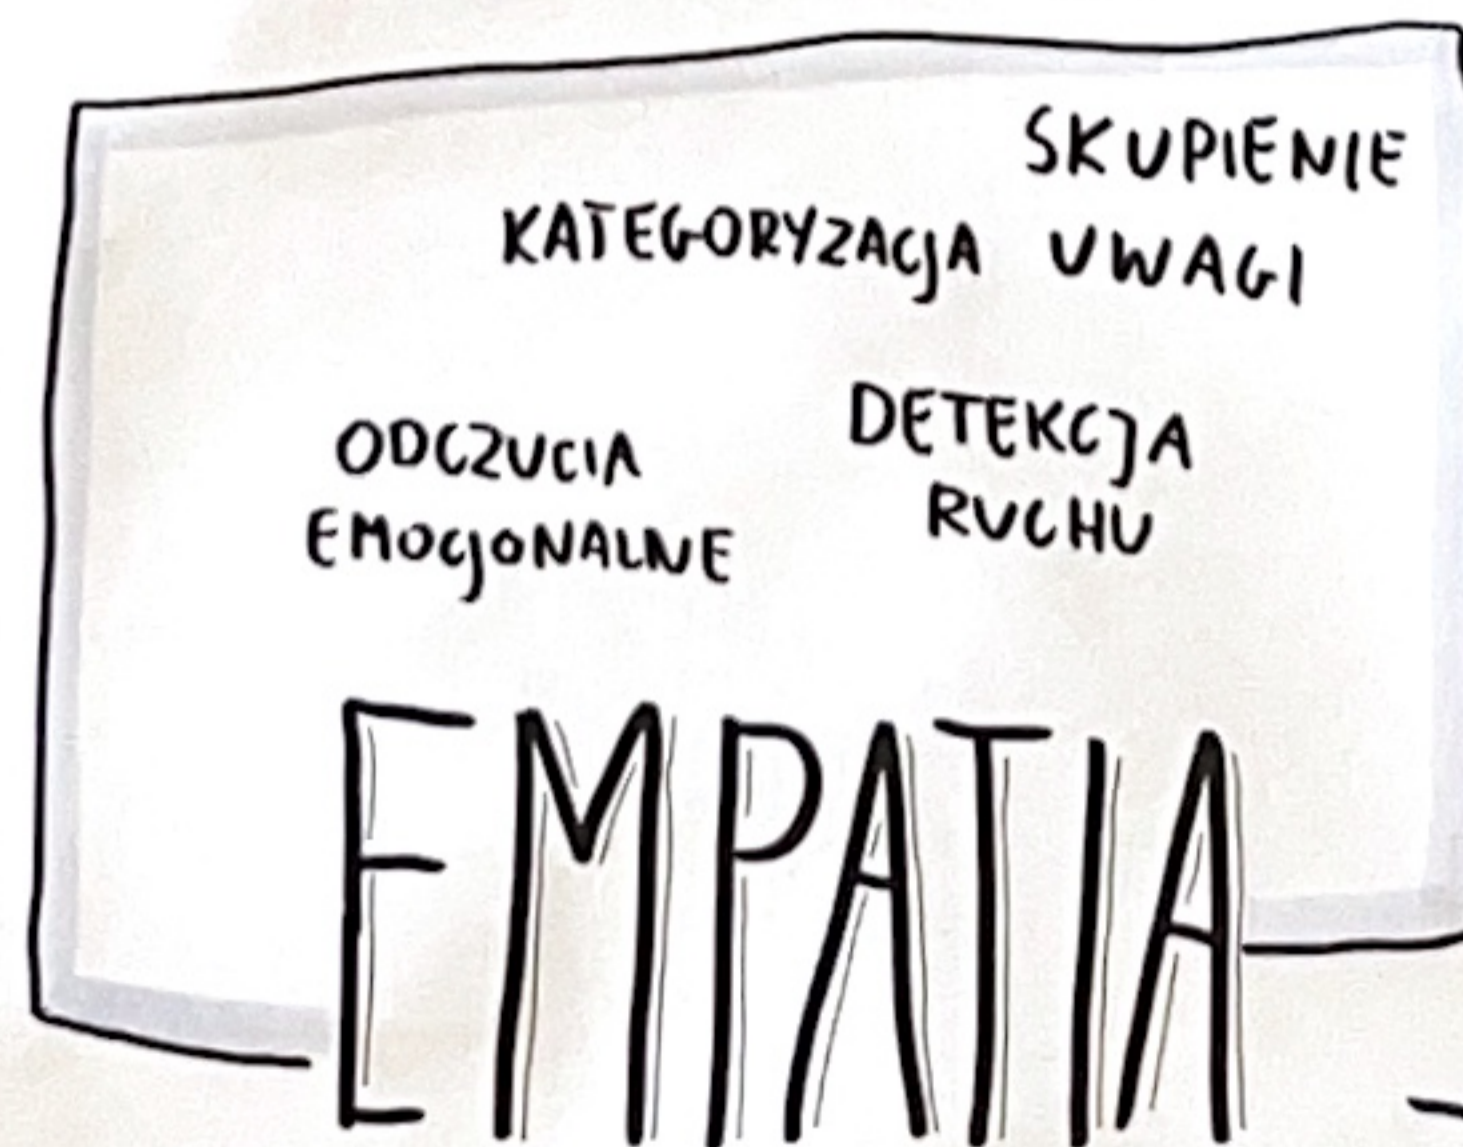 SKUPIENIE
KATEGORYZACJA UWAGI
ODCZUCIA
EMOCJONALNE
DETEKCJA
RUCHU
EMPATIA